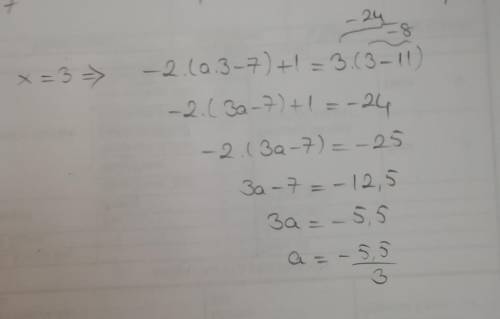 -24
-8
x = 3 ⇒ -2.(a.3-7)+1 = 3.(3-11)
-2.(3a-7)+1 = -24
-2.(3a-7) = -25
3a-7 = -12,5
3a = -5,5
a = -5,5/3